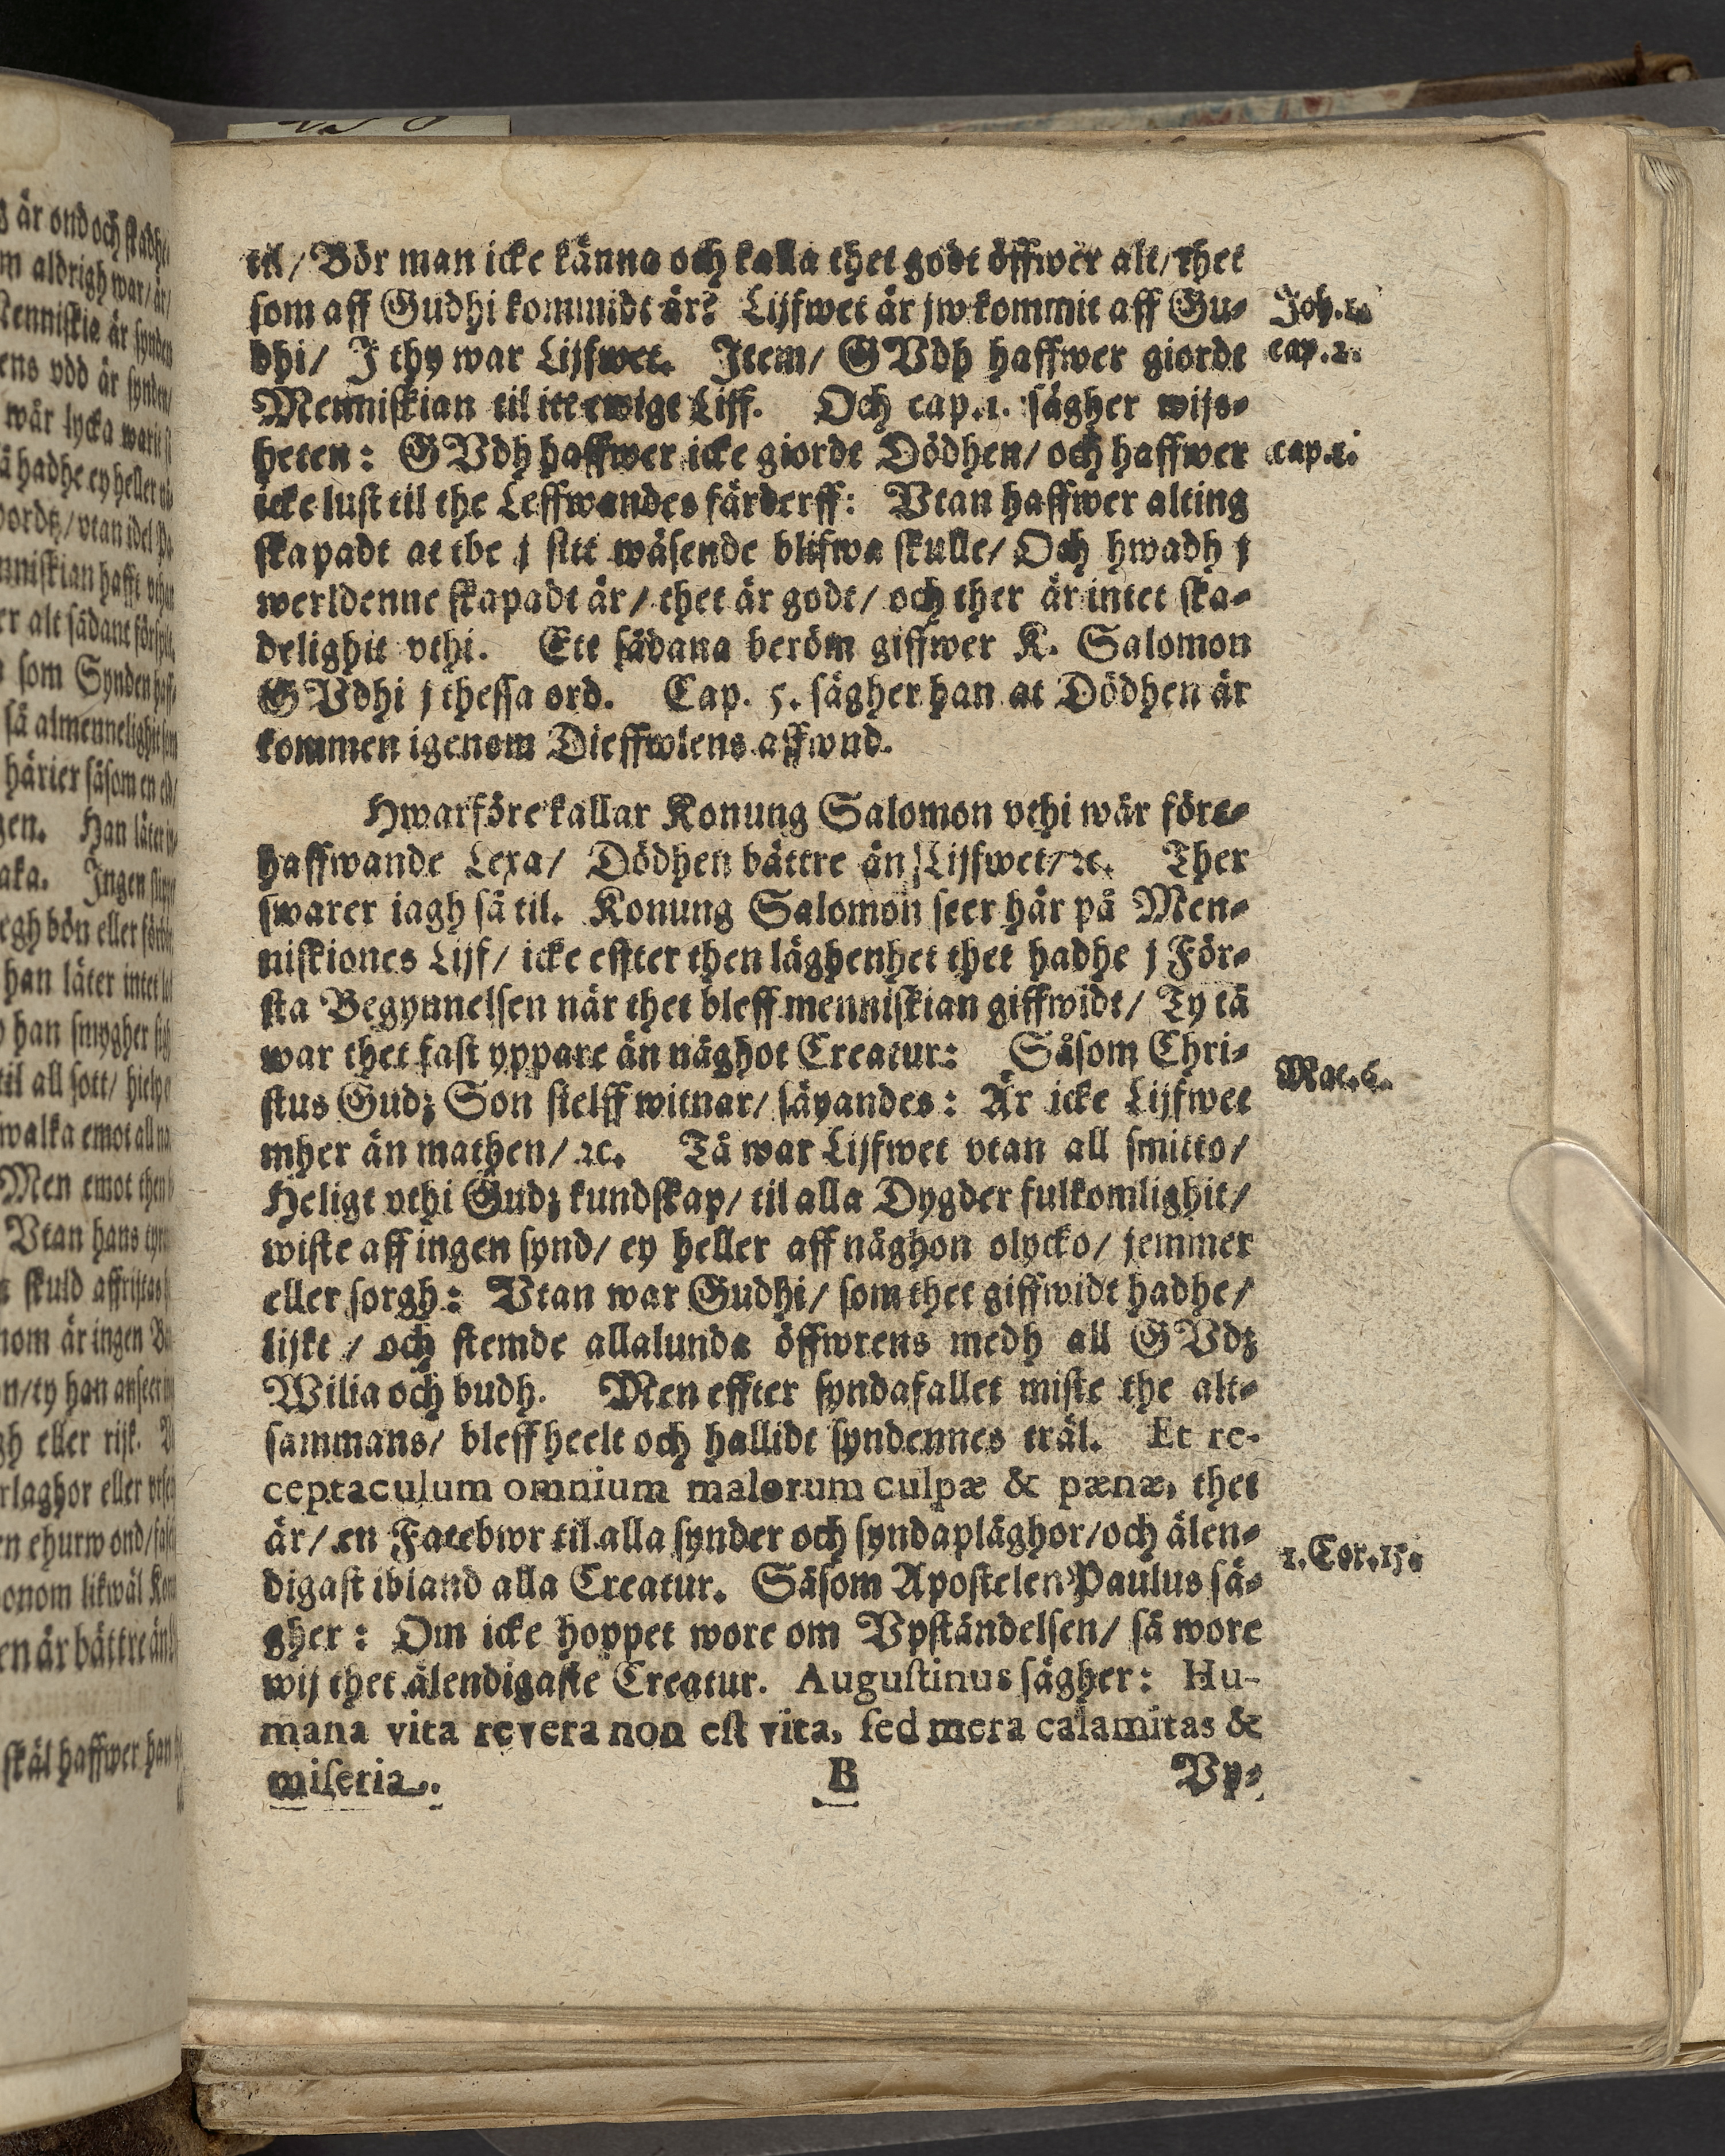 til / Bör man icke känna och kalla thet godt öffwer alt / thet
som aff Gudhi kommidt är? Lijfwet är jw kommit aff Gu-
Joh. 1.
dhi / J thy war Lijfwet. Jtem / GVdh haffwer giordt
cap. 2.
Menniskian til itt ewigt Liff. Och cap. 1. sägher wijs-
heten: GVdh haffwer icke giordt Dödhen / och haffwer
cap. 1.
icke lust til the Leffwandes färderff: Vtan haffwer alting
skapadt at the j sitt wäsende blifwa skulle / Och hwadh j
werldenne skapadt är / thet är godt / och ther är intet ska-
delighit vthi. Ett sådana beröm giffwer K. Salomon
GVdhi j thessa ord. Cap. 5. sägher han at Dödhen är
kommen igenom Dieffwlens affwnd.
Hwarföre kallar Konung Salomon vthi wår före-
haffwande Lexa / Dödhen bättre än Lijfwet / ꝛc. Ther
swarer iagh så til. Konung Salomon seer här på Men-
niskiones Lijf / icke effter then läghenhet thet hadhe j För-
sta Begynnelsen när thet bleff menniskian giffwidt / Ty tå
war thet fast yppare än någhot Creatur: Såsom Chri-
stus Gudz Son sielff witnar / säyandes: Är icke Lijfwet
Mat. 6.
mher än mathen / ꝛc. Tå war Lijfwet vtan all smitto /
Heligt vthi Gudz kundskap / til alla Dygder fulkomlighit /
wiste aff ingen synd / ey heller aff någhon olycko / jemmer
eller sorgh: Vtan war Gudhi / som thet giffwidt hadhe /
lijkt / och stemde allalunda öffwrens medh all GVdz
Wilia och budh. Men effter syndafallet miste the alt-
sammans / bleff heelt och hallidt syndennes träl. Et re-
ceptaculum omnium malorum culpæ & pænæ, thet
är / en Fatebwr til alla synder och syndaplåghor / och älen-
digast ibland alla Creatur. Såsom Apostelen Paulus sä-
1. Cor. 15.
gher: Om icke hoppet wore om Vpståndelsen / så wore
wij thet älendigaste Creatur. Augustinus sägher: Hu-
mana vita revera non est vita, sed mera calamitas &
miseria. B Vp-